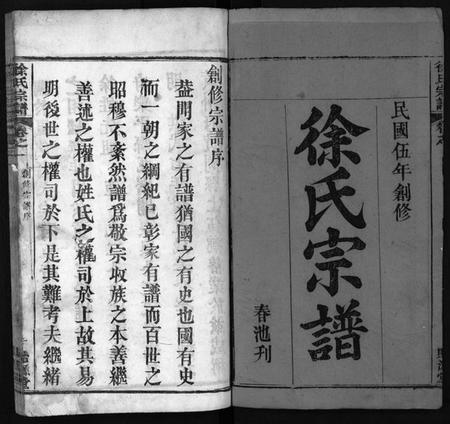 民國伍年創修
徐氏宗譜
春池刊
徐氏宗譜
創修宗譜序
蓋聞家之有譜猶國之有史也國有史
而一朝之綱紀已彰家有譜而百世之
昭穆不紊然譜爲敬宗收族之本善繼
善述之權也姓氏之權司於上故其易
明後世之權司於下是其難者夫繼緒
徐氏宗譜
卷之一
創修宗譜序